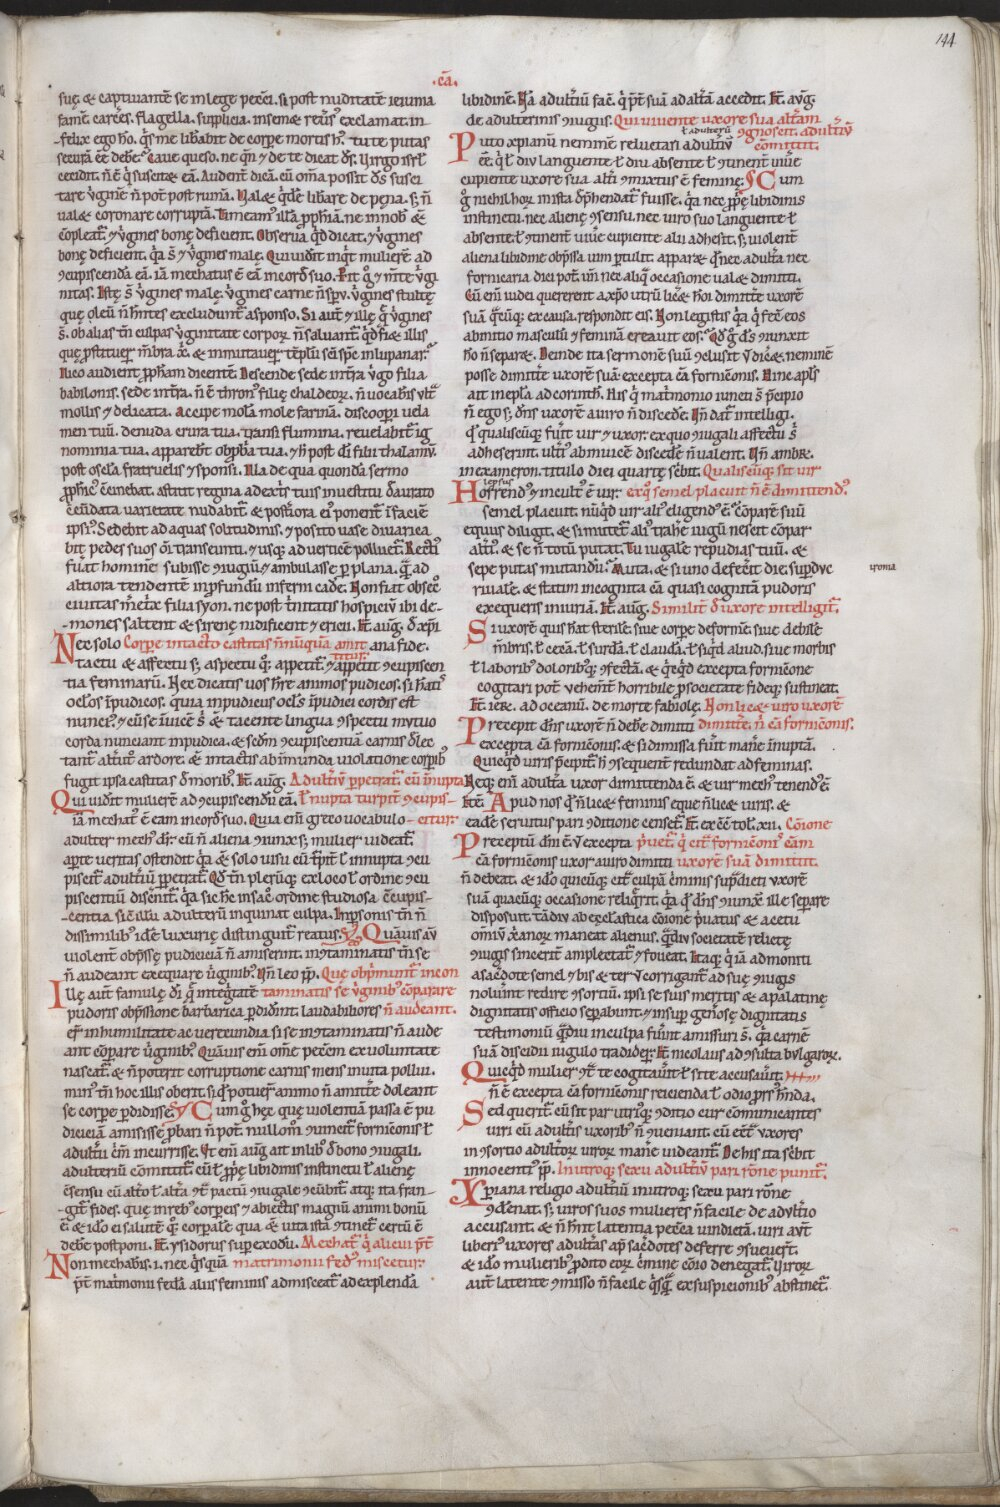 144
.cā.
suę. & captivantē se in lege peccī. si post nuditatē ieiunia
famē. carceres. flagella. supplicia. insemæ reus exclamat. in-
felix ego ho. qs me libabit de corpe mortis hᵒ. tu te putas
securā eē debe. Cave queso. ne qn & de te dicat ds. Virgo isrl
cecidit. n ē q suscitæ eā. Audent dicā. cū omīa possit ds susci
tare v̄ginē n pot post ruinā. Valæ qdē libare de pena. s; n
valæ coronare corruptā. Timeam illā pphiā. ne in nob &
cōpleat. & v̄gines bonę deficient. Observa qd dicat. & v̄gines
bonę deficient. qa s & v̄gines malę. Qui vidit inqt mulierē ad
ɔcupiscendā eā. iā mechatus ē eā in corde suo. Pit g & mte v̄gi
nitas. Istę s v̄gines malę. v̄gines carne n spu. v̄gines stultę
quę oleū n hntes excludunt a sponso. Si aut & ille q v̄gines
s. ob alias tn culpas v̄ginitate corpor n salvant. qd fiæ illis
quę pstituer mbra x. & inmutaver teplū sci spc in lupanar.
Ilico audient ppham dicente. Descende sede in tra v̄go filia
babilonis. sede in tra. n ē thron filię chaldeor. n vocabis ult
mollis & delicata. Accipe molā mole farinā. discoopi vela
men tuū. denuda crura tua. transi flumina. revelabit ig
nominia tua. apparebt obpbria tua. & h post di filii thalamū.
post oscla fratruelis & sponsi. Illa de qua quondā sermo
pphic cecinebat. astitit regina a dextris tuis in vestitu deaurato
circūdata varietate nudabit & posteriora eius ponent in facie
ipsi. Sedebit ad aquas solitudinis. & posito vase divarica
bit pedes suos oi transeunti. & usq; ad verticē polluet. Recti
fuat homine subisse ɔiugiū & ambulasse p plana. q ad
altiora tendentē in pfundū inferni cade. Non fiat obsec
civitas metrix filia syon. ne post trinitatis hospiciū ibi de-
-mones saltent & sirenę nidificent & ericii. It. aug. d xpi
Nec solo Corpe intacto castitas nnūquā amit ana fide.
tactu & affectu s; aspectu q; appetit & appetit ɔcupiscen titur.
tia feminarū. Nec dicatis vos hre animos pudicos. si hatis
oclos inpudicos. quia inpudicus ocls inpudici cordis est
nuncī. & cū se invicē s & tacente lingua ɔspectu mutuo
corda nunciant inpudica. & scdm ɔcupiscentiā carnis delec
tant alterut ardore. & intactis ab inmunda violatione corpib
fugit ipsa castitas d morib. It. aug. Adulterīū ppetrat. cū innupta
Qui vidit mulierē ad ɔcupiscendū eā. l nupta turpit ɔcupis-
iā mechat ē eam in corde suo. Quia enī greco vocabulo -citur.
adulter mech dr. cū n aliena ɔiunx s; mulier videat.
apte veritas ostendit qa & solo visu cū turpit l innupta ɔcu
piscit adulteriū ppetrat. Qd tn plerūq; ex loco l ordine ɔcu
piscenti discernit. qa sic hc in sacro ordine studiosa ɔcupis-
-centia sic illū adulterii inquinat culpa. In psonis tn n
dissimilib idē luxurię distinguit reatus. Quāvis aū
violent obpssę pudicitiā n amiserint. incōtaminatis tn se
n audeant exequare v̄ginib. Un leo pp. Que obprimunt incon
Illę aut famulę di q integritatē taminatis se v̄ginib cōparare
pudoris obpssione barbarica pdidert. laudabiliores n audeant.
erū in humilitate ac verecundia si se incōtaminatis n aude
ant cōpare v̄ginib. Quāvis enī ome peccm ex voluntate
nascat. & n poterit corruptione carnis mens invita pollui.
min tn hoc illis oberit. si qd potuerū animo n amitte doleant
se corpe pdidisse. Cum g hęc quę violentiā passa ē pu
dicitiā amisisse pbari n pot. nullom ɔvincit fornicōnis l
adulterii crim incurrisse. Ut enī aug ait in lib d bono ɔiugali.
adulteriū cōmittit. cū l ppę libidinis instinctu l alienę
ɔsensu cū altero l alta ɔt pactū ɔiugale ɔcubit. atq; ita fran-
-git fides. quę in reb corpeis & abiectis magnū animi bonū
ē. & ido ei salute q corpale qua & vita ista ɔtinet certū ē
debe postponi. It. ysidorus sup exodū. Mechat q alicui pt
Non mechabis. i. nec qsquā matrimonii fedus miscetur.
pt matrimonii fedā aliis feminis admisceat ad explendā
libidinē. Na adulteriū facē. q pt suā ad altā accedit. It. aug.
de adulterinis ɔiugiis. Qui vivente uxore sua alterā
l adulterū ɔgnoscit. adulteriū
Puto xpianū neminē reluctari adulterū cōmittit.
eē. q l diu languente l diu absente l ɔtinent vive
cupiente uxore sua alti ɔmixtus ē feminę. Cum
g nichil hor in ista dphendat fuisse. qa nec ppę libidinis
instinctu. nec alienę ɔsensu. nec viro suo languente l
absente l ɔtinent vive cupiente alii adhesit. s; violent
aliena libidine obpssa vim ptulit. apparæ qd nec adultera nec
fornicaria dici pot. un nec aliq occasione valæ dimitti.
Cū enī iudei quererent a xpo utrū liceæ hoi dimitte uxorē
suā quacūq; ex causa. respondit eis. Non legistis qa q fecit eos
ab initio masculū & feminā creavit eos. Qd g ds ɔiunxit
ho n separæ. Deinde ita sermonē suū ɔclusit ut diceræ. neminē
posse dimitte uxorē suā excepta cā fornicōnis. Hinc apls
ait in epla ad corinth. His q matrimonio iuncti s pcipio
n ego s; dns uxorē a viro n discede. Un dat intelligi.
qd qualiscūq; fuit vir & uxor. ex quo ɔiugali affectu s
adheserint. ulteri ab invicē discede n valent. Un ambr.
in exameron. titulo diei quartę scbit. Qualiscūq; sit vir
lepsus
Horrend & incult ē vir. ex q semel placuit n ē dimittend.
semel placuit. nūqd vir alius eligend ē. cōparē suū
equus diligit. & si mutet ali trahe iugū nescit cōpar
alti. & se n totū putat. Tu iugale repudias tuū. &
sepe putas mutandū. Muta. & si uno defecit die. supduc
rivale. & statim incognita cā quasi cognitā pudoris
exequeris iniuriā. It. aug. Similit d uxore intelligit.
Si uxorē quis hat sterilē. sive corpe deformē. sive debile
mbris. l cecā. l surdā. l claudā. l siqd aliud. sive morbis
l laborib doloribq; ɔfectā. & qcqd excepta fornicōne
cogitari pot. vehement horribile p societate fideq; sustineat.
It. ieR. ad oceanū. de morte fabiolę. Non licæ viro uxorē
Precepit dns uxorē n debe dimitti dimitte. n cā fornicōnis.
excepta cā fornicōnis. & si dimissa fuit mane inuptā.
Quicqd viris pcipit h ɔsequent redundat ad feminas.
Neq; enī adultera uxor dimittenda ē. & vir mech tenend ē.
Itē. Apud nos q n licæ feminis eque n licæ viris. &
eadē servitus pari ɔditione censet. It. ex cc tol. xii. Cōione
Preceptū dni ē. ut excepta pvet q cit fornicōni cām
cā fornicōnis uxor a viro dimitti uxorē suā dimittit.
n debeat. & ido quicūq; cit culpā criminis supdicti uxorē
suā quacūq; occasione reliqrit. qa qd dns iunxit ille separe
disposuit. tādiu ab ecclastica cōione pvatus & a cetu
omiū xpianor maneat alienus. qdiu societatē relictę
ɔiugis sincerit amplectat & foveat. Itaq; q iā admoniti
a sacdote semel & bis & ter ut corrigant ad suę ɔiugis
noluint redire ɔsortiū. ipsi se suis meritis & a palatinę
dignitatis officio sepabunt. & insup genosę dignitatis
testimoniū qdiu in culpa fuint amissuri s. qa carnē
suā discidii iugulo tradider. It. nicolaus ad ɔsulta bulgaror.
Quicqd mulier ɔt te cogitavit l si te accusavit.
n ē excepta cā fornicōnis reicienda l odio prs hnda.
Sed querit. cū sit par utriq; ɔditio cur cōmunicantes
viri cū adulteris uxorib n ɔveniant. cū ect uxores
in ɔsortio adulteror viror mane videant. De his ita scbit
innocenti pp. In utroq; sexu adulteriū pari rōne punit.
Xpiana religio adulteriū in utroq; sexu pari rōne
ɔdemnat. s; viros suos mulieres n facile de adulterio
accusant. & n hnt latentia peccata vindictā. viri aut
liberi uxores adulteras ap sacdotes deferre ɔsuever.
& ido mulierib pdito eor crimine cōio denegat. Viror
aut latente ɔmisso n facile qsq ex suspicionib abstinet.
yronia